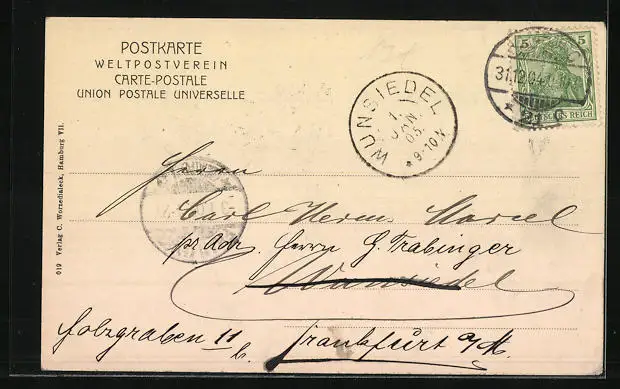 POSTKARTE
WELTPOSTVEREIN
CARTE-POSTALE
UNION POSTALE UNIVERSELLE
5 5
DEUTSCHES REICH
31.12.04
WUNSIEDEL
1.
JAN
05.
* 9-10 N
Herrn
Carl Herm. Marcel
pr. Adr. Herrn G. Trabinger
Wunsiedel
Holzgraben 11 b.
Frankfurt a/M.
019 Verlag C. Worzedialeck, Hamburg VII.